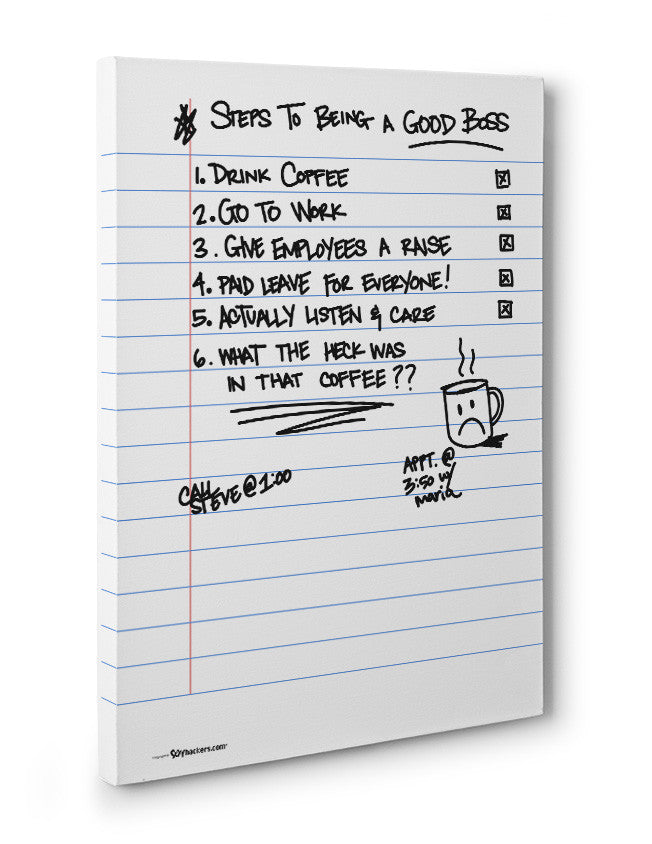 Steps To Being A Good Boss
1. Drink Coffee
2. Go To Work
3. Give Employees A Raise
4. Paid Leave For Everyone!
5. Actually Listen & Care
6. What The Heck Was
In That Coffee??
Call
Steve @ 1:00
Appt. @
3:50 w/
Maria
hackers.com